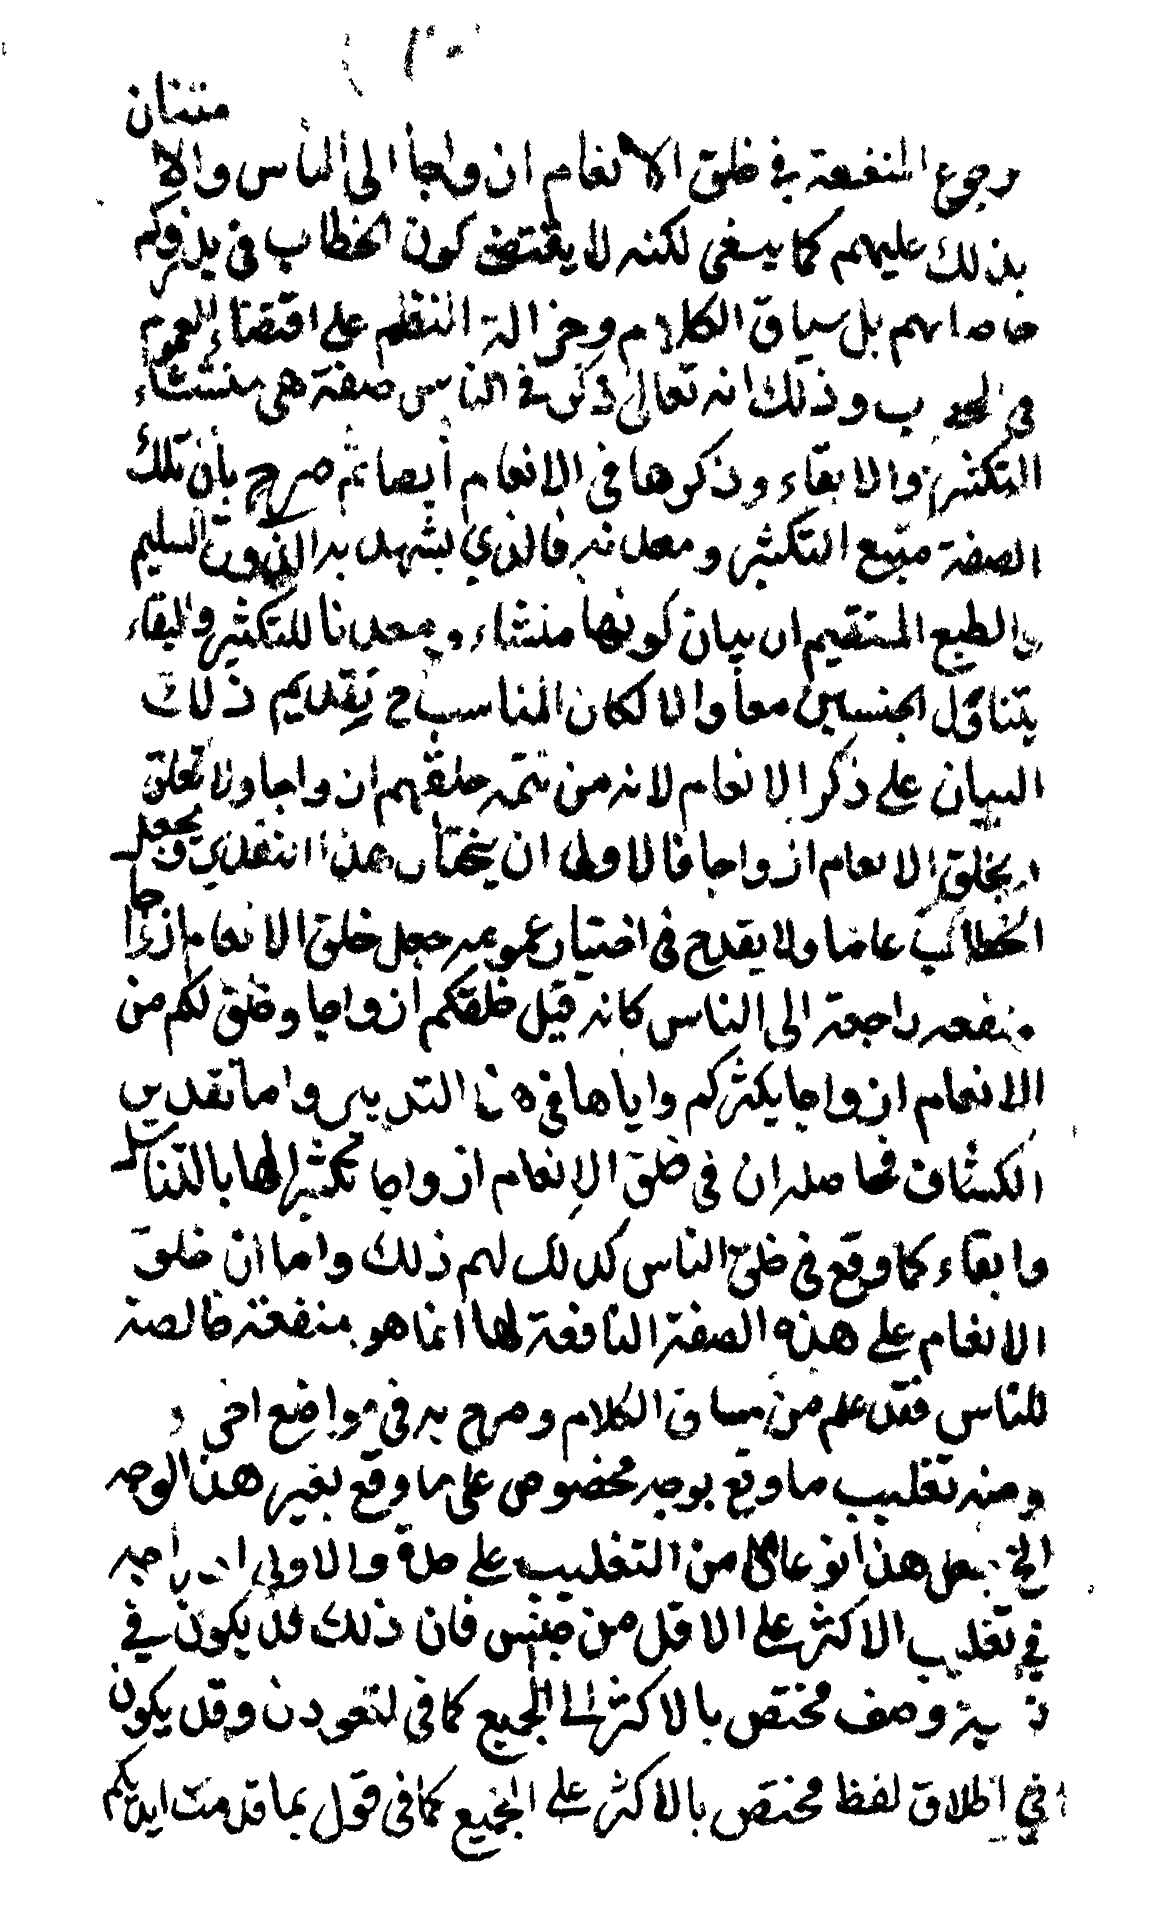 رجوع المنفعة في خلق الانعام ازواجا الى الناس والامتنان
بذلك عليهم كما ينبغى لكنه لا يقتضى كون الخطاب في يذرؤكم
خاصا بهم بل سياق الكلام وجزالة النظم على اقتضاء العموم
في وذلك انه تعالى ذكر في الناس صفة هى منشاء
التكثير والابقاء وذكرها في الانعام أيضا ثم صرح بأن تلك
الصفة منبع التكثير ومعدنه فالذي يشهد به الذوق السليم
والطبع المستقيم ان بيان كونها منشاء ومعدنا للتكثير والبقاء
يتناول الجنسين معا والا لكان المناسب ح تقديم ذلك
البيان على ذكر الانعام لانه من تتمة خلقهم ازواجا ولا تعلق
بخلق الانعام ازواجا فالاولى ان يختار هذا التقدير ويجعل
الخطاب عاما ولا يقدح في اختيار عمومه جعل خلق الانعام ازواجا
منفعه راجعة الى الناس كانه قيل خلقكم ازواجا وخلق لكم من
الانعام ازواجا يكثركم واياها في هذا التدبير واما تقدير
الكشاف فحاصله ان في خلق الانعام ازواجا تكثيرا لها بالتناسل
وابقاء كما وقع في خلق الناس كذلك لهم ذلك واما ان خلق
الانعام على هذه الصفة النافعة لها انما هو منفعة خالصة
للناس فقد علم من مساق الكلام وصرح به في مواضع اخرى
ومنه تغليب ما وقع بوجه مخصوص على ما وقع بغير هذا الوجه
الخ جعل هذا نوعا من التغليب على حدة والاولى ادراجه
في تغليب الاكثر على الاقل من جنس فان ذلك قد يكون في
نسبة وصف مختص بالاكثر الى الجميع كما في لتعودن وقد يكون
في اطلاق لفظ مختص بالاكثر على الجميع كما في قول بما قدمت ايديكم